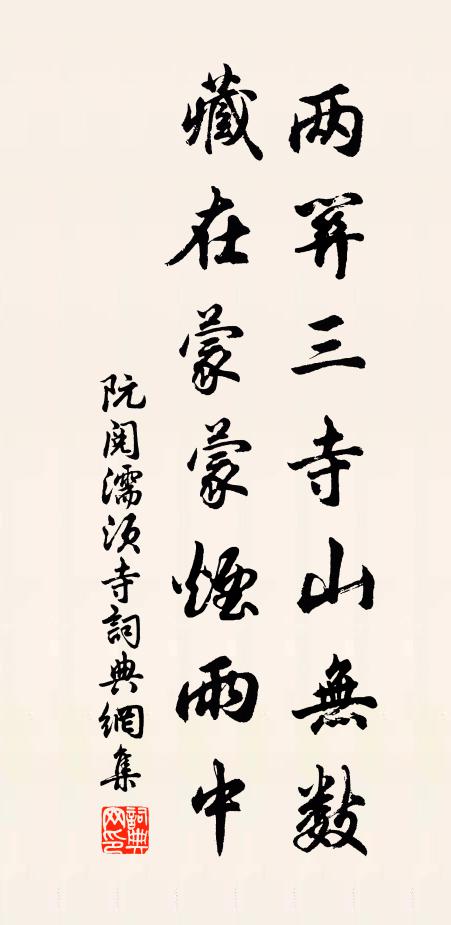 两關三寺山無數
藏在蒙蒙煙雨中
阮閱濡須寺詞典網集
詞典
网印